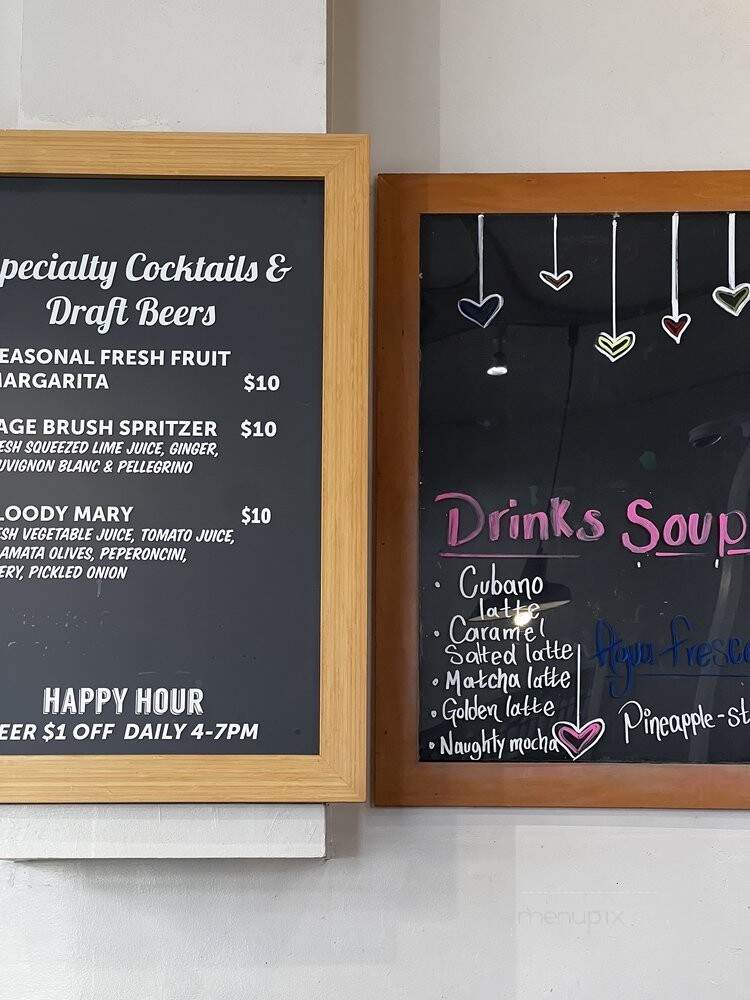 pecialty Cocktails &
Draft Beers
EASONAL FRESH FRUIT
MARGARITA $10
AGE BRUSH SPRITZER $10
ESH SQUEEZED LIME JUICE, GINGER,
UVIGNON BLANC & PELLEGRINO
LOODY MARY $10
ESH VEGETABLE JUICE, TOMATO JUICE,
AMATA OLIVES, PEPERONCINI,
ERY, PICKLED ONION
HAPPY HOUR
EER $1 OFF DAILY 4-7PM
Drinks Soup
• Cubano
latte
• Caramel
Salted latte
• Matcha latte
• Golden latte
• Naughty mocha
Agua fresca
Pineapple-st
menupix